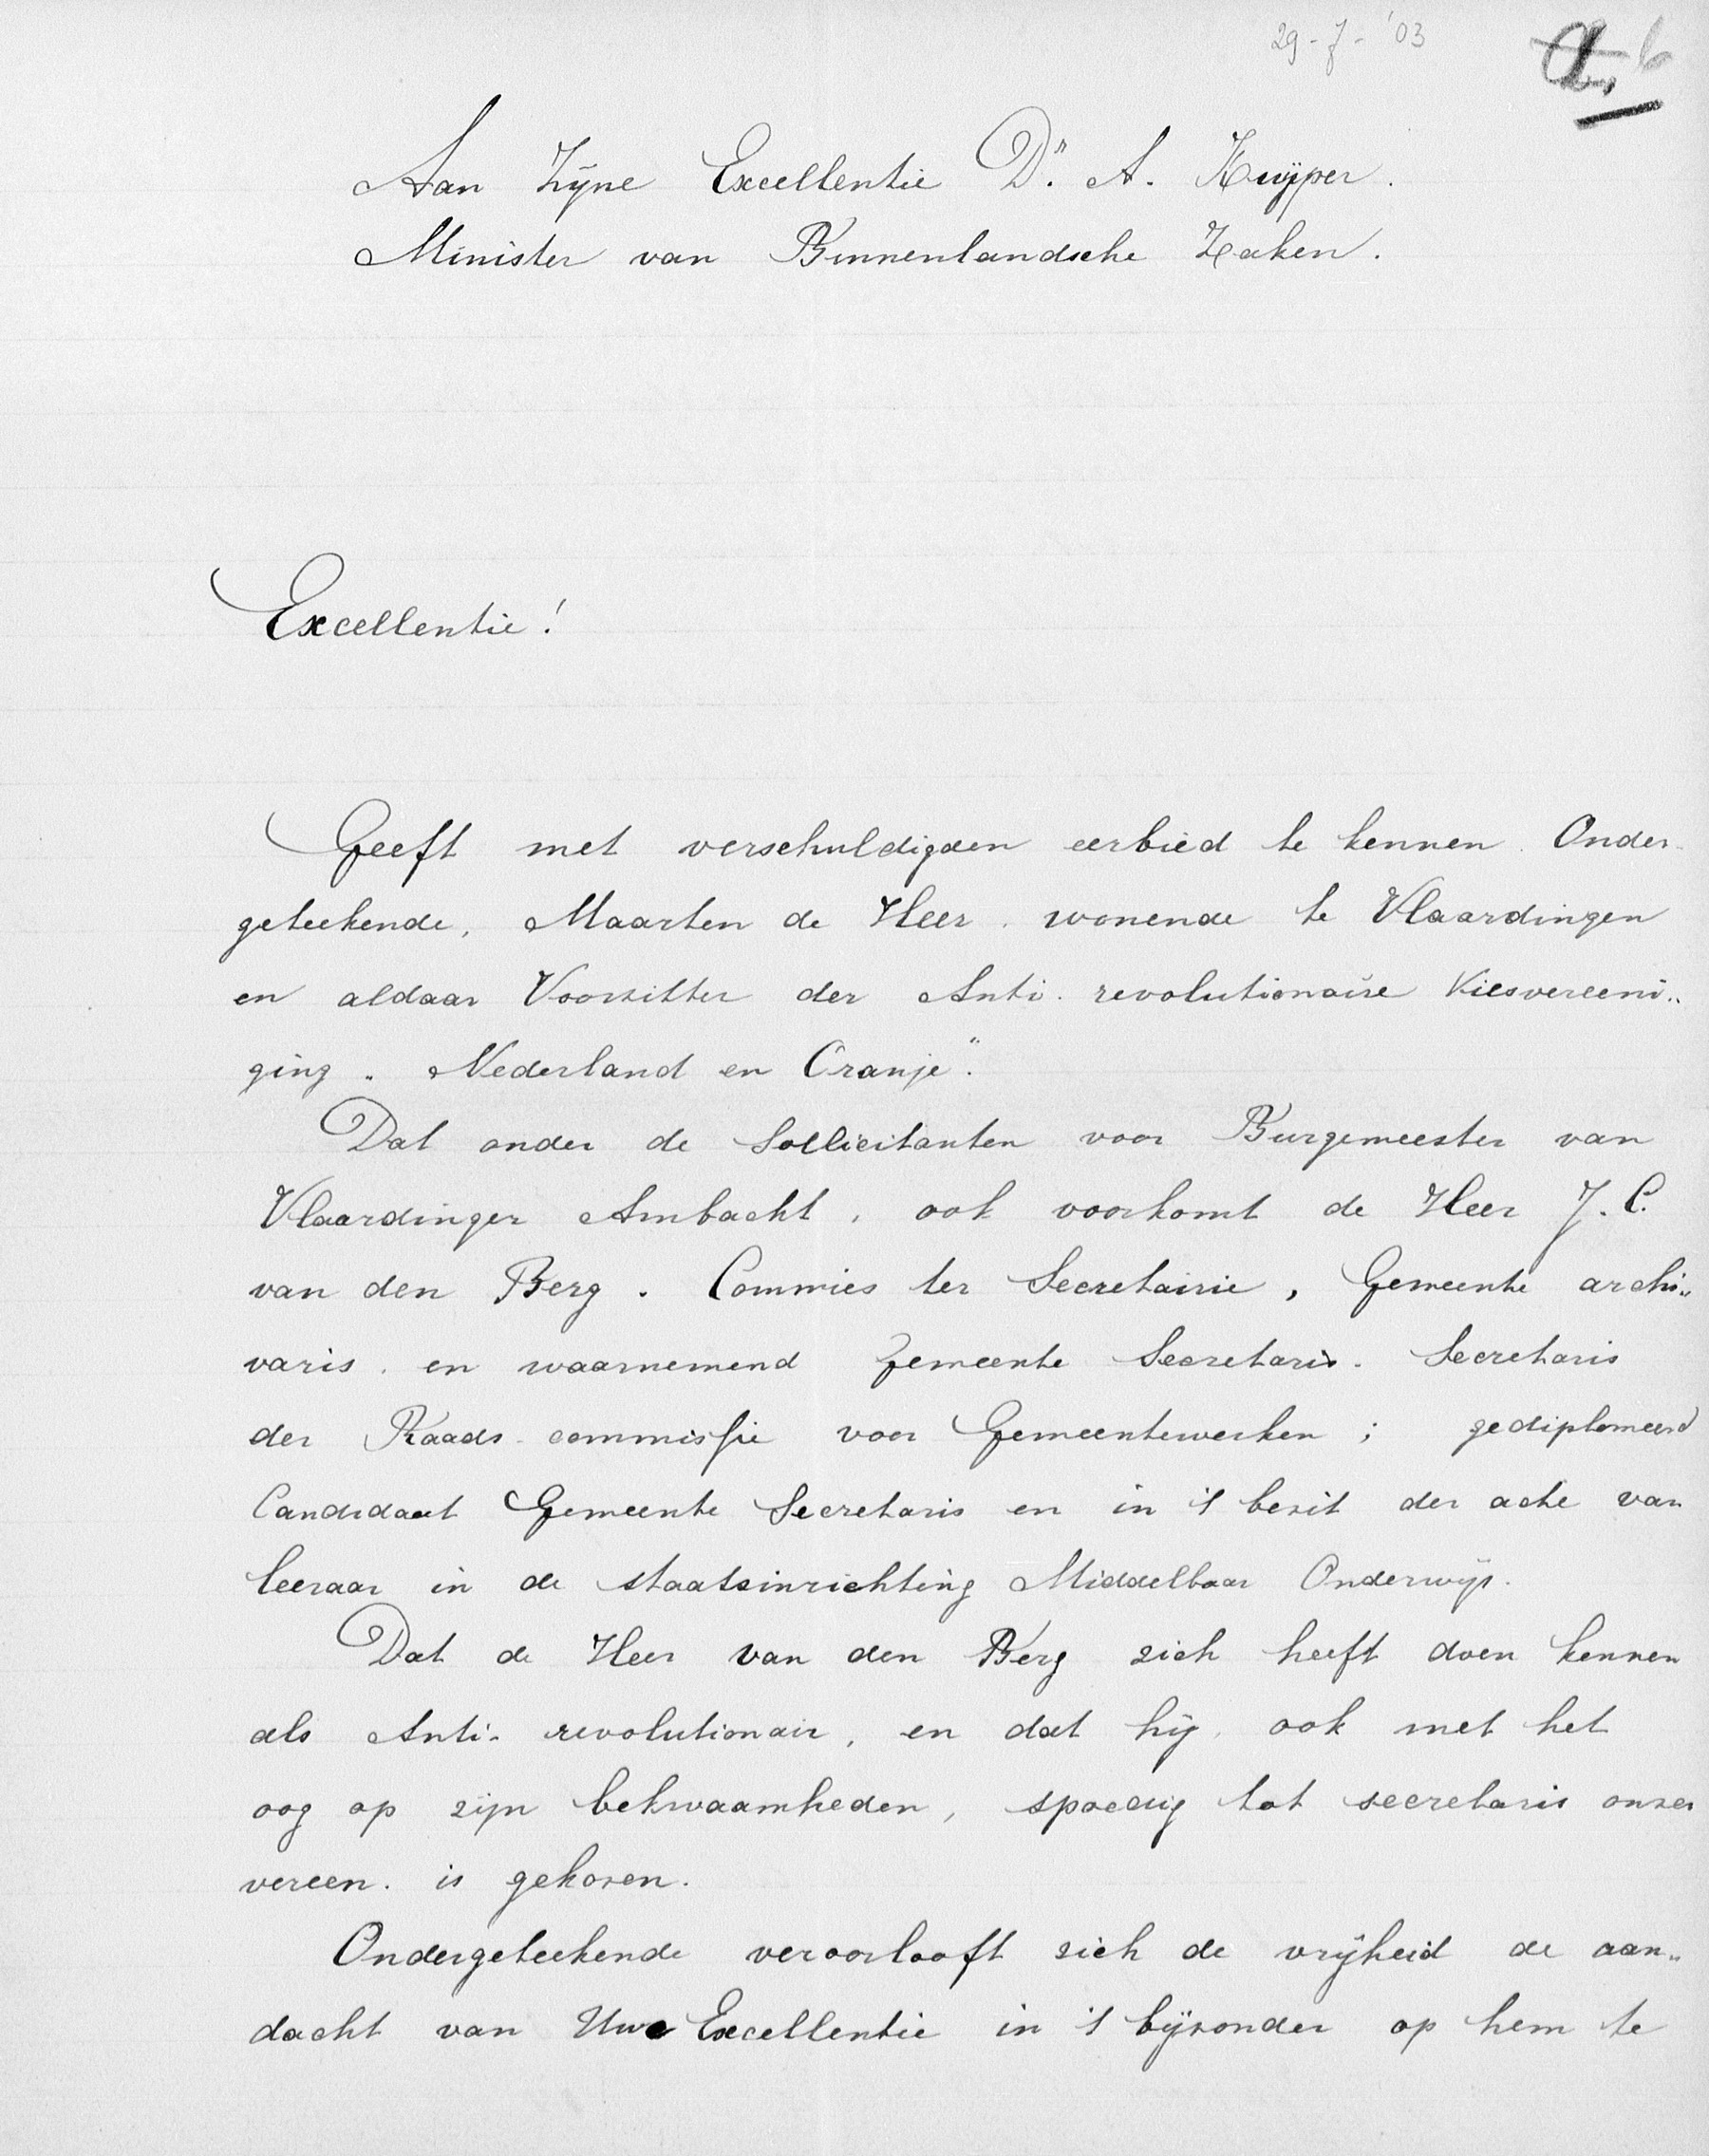 29-7-'03
b
Aan Zijne Excellentie Dr. A. Kuijper.
Minister van Binnenlandsche Zaken.
Excellentie!
Geeft met verschuldigden eerbied te kennen. Onder-
geteekende, Maarten de Heer. wonende te Vlaardingen
en aldaar Voorzitter der Anti. revolutionaire Kiesvereeni„
ging „ Nederland en Oranje".
Dat onder de Sollicitanten voor Burgemeester van
Vlaardinger Ambacht, ook voorkomt de Heer J. C.
van den Berg. Commies ter Secretairie, Gemeente archi„
varis. en waarnemend Gemeente Secretaris. Secretaris
der Raads-commissie voor Gemeentewerken; gediplomeerd
Candidaat Gemeente Secretaris en in 't bezit der acte van
leeraar in de staatsinrichting Middelbaar Onderwijs.
Dat de Heer van den Berg zich heeft doen kennen
als Anti-revolutionair, en dat hij. ook met het
oog op zijn bekwaamheden, spoedig tot secretaris onzer
vereen. is gekozen.
Ondergeteekende veroorlooft zich de vrijheid de aan„
dacht van Uwe Excellentie in 't bijzonder op hem te